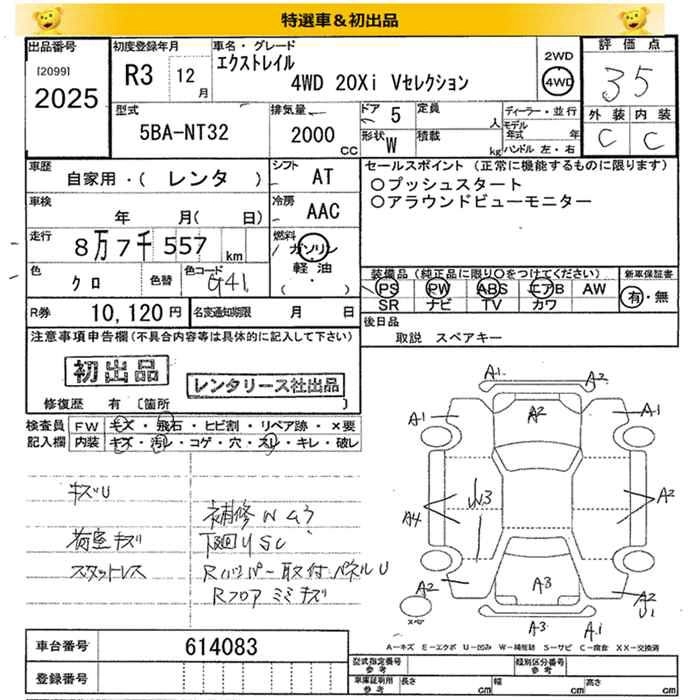 特選車＆初出品
出品番号
[2099]
2025
初度登録年月
R3 12月
車名・グレード
エクストレイル
4WD 20Xi Vセレクション
2WD
4WD
評価点
35
外装 内装
C C
型式
5BA-NT32
排気量
2000 cc
ドア 5
形状 W
定員 人
積載 kg
ディーラー・並行
モデル年式 年
ハンドル 左・右
車歴
自家用・( レンタ )
シフト AT
車検
年 月( 日)
冷房 AAC
走行
8万7千557 km
燃料
ガソリン
軽油
・
色
クロ
色替
色コード
G41
セールスポイント (正常に機能するものに限ります)
○プッシュスタート
○アラウンドビューモニター
装備品 (純正品に限り○をつけてください)
PS PW ABS エアB AW
SR ナビ TV カワ
新車保証書
有・無
R券 10,120円
名変通知期限 月 日
後日品
取説 スペアキー
注意事項申告欄 (不具合内容等は具体的に記入して下さい)
初出品
レンタリース社出品
修復歴 有 [箇所
検査員記入欄
FW キズ・飛石・ヒビ割・リペア跡・×要
内装 キズ・汚レ・コゲ・穴・スレ・キレ・破レ
キズU
補修W
荷室キズ
下廻りSC
スタットレス
Rバンパー取付パネルU
RフロアミミキズA1 A2
A1 A2 A1
A4 W3 A2
A2 A3 A2
U1
スペア
A3 A1
A－キズ E－エクボ U－凹み W－補修跡 S－サビ C－腐食 XX－交換済
車台番号 614083
登録番号
型式指定番号 参考
類別区分番号 参考
車庫証明用 参考
長さ cm
幅 cm
高さ cm